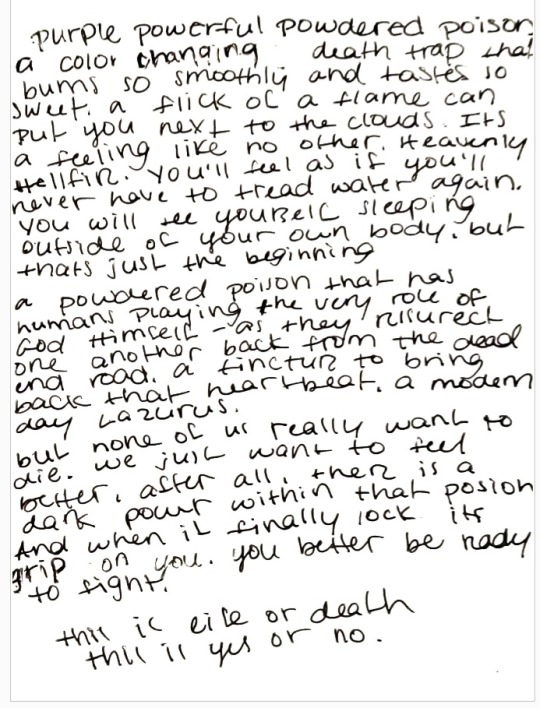 purple powerful powdered poison,
a color changing death trap that
burns so smoothly and tastes so
sweet. a flick of a flame can
put you next to the clouds. Its
a feeling like no other. Heavenly
Hellfire. You'll feel as if you'll
never have to tread water again.
you will see yourself sleeping
outside of your own body. but
thats just the beginning
a powdered poison that has
humans playing the very role of
God Himself - as they risurect
one another back from the dead
end road. a tincture to bring
back that heartbeat. a modern
day Lazurus.
but none of us really want to
die. we just want to feel
better, after all, there is a
dark power within that posion
And when it finally lock its
grip on you. you better be ready
to fight.
this is life or death
this is yes or no.